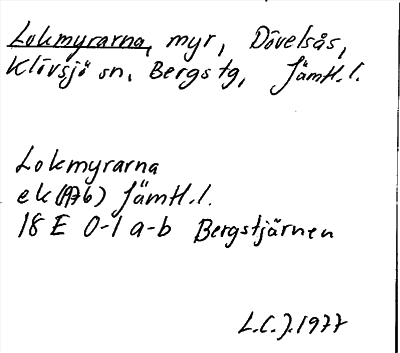 Lokmyrarna, myr, Dövelsås,
Klövsjö sn, Bergs tg, Jämtl.l.
Lokmyrarna
ek (1976) Jämtl.l.
18 E 0-1 a-b Bergstjärnen
L.C.J. 1977